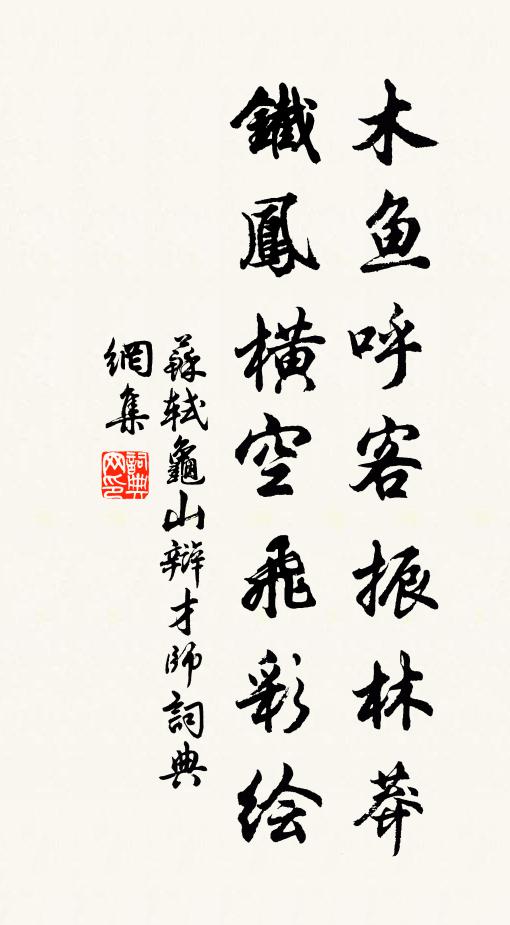 木鱼呼客振林莽
鐵鳳橫空飛彩绘
蘇軾龜山辯才師詞典
網集
詞典
网印